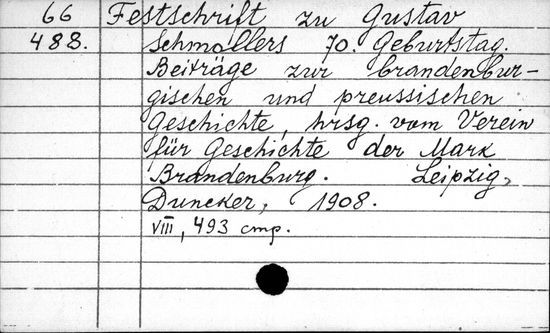 66 Festschrift zu Gustav
488. Schmollers 70. Geburtstag.
Beiträge zur brandenbur-
gischen und preussischen
Geschichte, hrsg. vom Verein
für Geschichte der Mark
Brandenburg. Leipzig,
Duncker, 1908.
VIII, 493 стр.